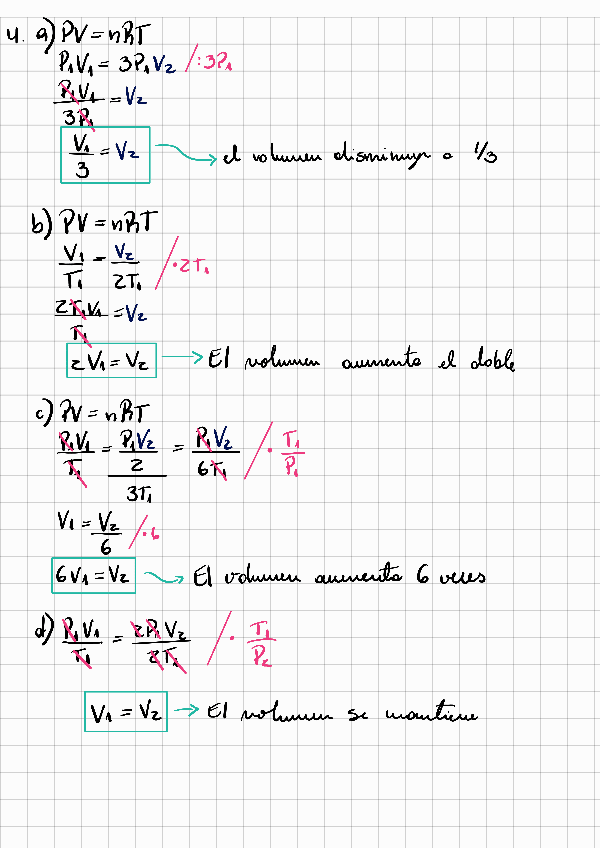 4. a) PV = nRT
P₁V₁ = 3P₁V₂ /:3P₁
P₁V₁/3P₁ = V₂
V₁/3 = V₂ → el volumen disminuye a 1/3
b) PV = nRT
V₁/T₁ = V₂/2T₁ /·2T₁
2T₁V₁/T₁ = V₂
2V₁ = V₂ → El volumen aumenta el doble
c) PV = nRT
P₁V₁/T₁ = (P₁V₂/2)/3T₁ = P₁V₂/6T₁ /· T₁/P₁
V₁ = V₂/6 /·6
6V₁ = V₂ → El volumen aumenta 6 veces
d) P₁V₁/T₁ = 2P₁V₂/2T₁ /· T₁/P₂
V₁ = V₂ → El volumen se mantiene